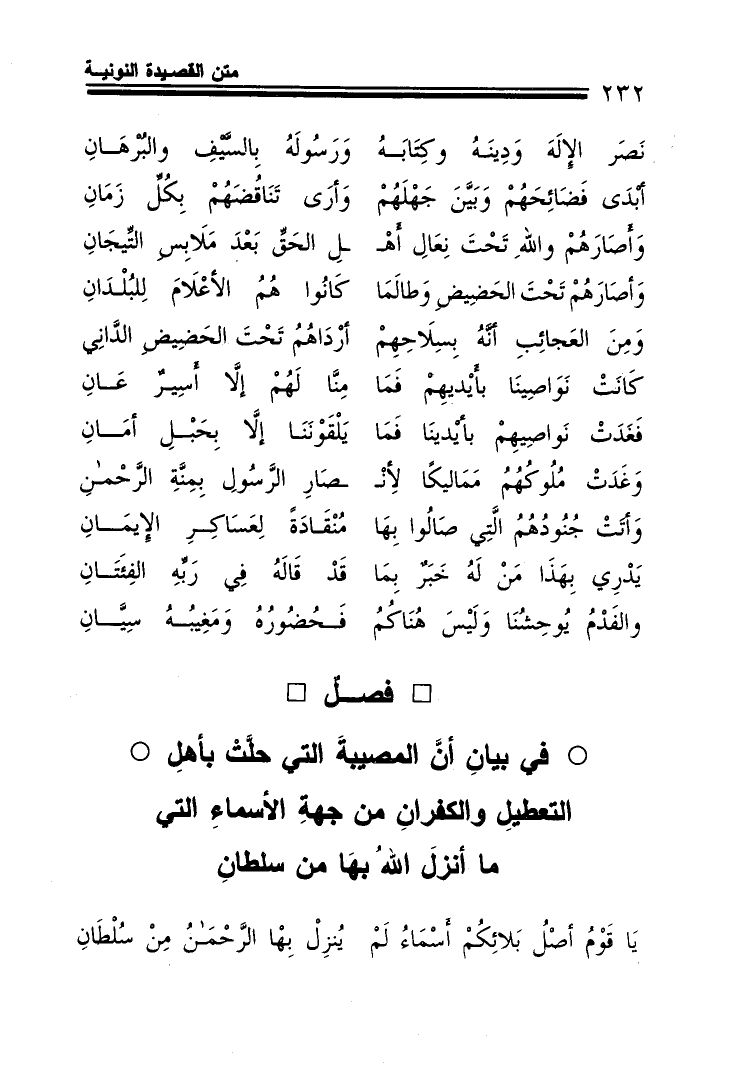 متن القصيدة النونية
٢٣٢
نَصَر الإِلهَ وَدِينَهُ وكِتَابَهُ وَرَسُولَهُ بِالسَّيْفِ والبُرْهَانِ
أبْدَى فَضَائِحَهُمْ وَبَيَّنَ جَهْلَهُمْ وَأرَى تَنَاقُضَهُمْ بِكُلِّ زَمَانِ
وَأَصَارَهُمْ واللهِ تَحْتَ نِعَالِ أَهْـ ـلِ الحَقِّ بَعْدَ مَلَابِسِ التِّيجَانِ
وَأصَارَهُمْ تَحْتَ الحَضِيضِ وَطالَمَا كَانُوا هُمُ الأعْلَامَ لِلبُلْدَانِ
وَمِنَ العَجائِبِ أنَّهُ بِسِلَاحِهِمْ أرْدَاهُمُ تَحْتَ الحَضِيضِ الدَّانِي
كَانَتْ نَوَاصِينَا بأَيْدِيهِمْ فَمَا مِنَّا لَهُمْ إلَّا أَسِيرٌ عَانِ
فَغَدَتْ نَواصِيهِمْ بأيْدِينَا فَمَا يَلْقَوْنَنَا إلَّا بِحَبْلِ أمَانِ
وَغَدَتْ مُلُوكُهُمُ مَمَاليكًا لِأنْـ ـصَارِ الرَّسُولِ بِمِنَّةِ الرَّحْمٰنِ
وَأتَتْ جُنُودُهُمُ الَّتِي صَالُوا بِهَا مُنْقَادَةً لِعَسَاكِرِ الإِيمَانِ
يَدْرِي بِهَذَا مَنْ لَهُ خَبَرٌ بِمَا قَدْ قَالَهُ فِي رَبِّهِ الفِئَتَانِ
والفَدْمُ يُوحِشُنَا وَلَيْسَ هُنَاكُمُ فَحُضُورُهُ وَمَغِيبُهُ سِيَّانِ
□ فصلٌ □
○ في بيانِ أنَّ المصيبةَ التي حلَّتْ بأهلِ ○
التعطيلِ والكفرانِ من جهةِ الأسماءِ التي
ما أنزلَ اللهُ بهَا من سلطانِ
يَا قَوْمُ أصْلُ بَلائِكُمْ أَسْمَاءُ لَمْ يُنزِلْ بِهْا الرَّحْمَٰنُ مِنْ سُلْطَانِ